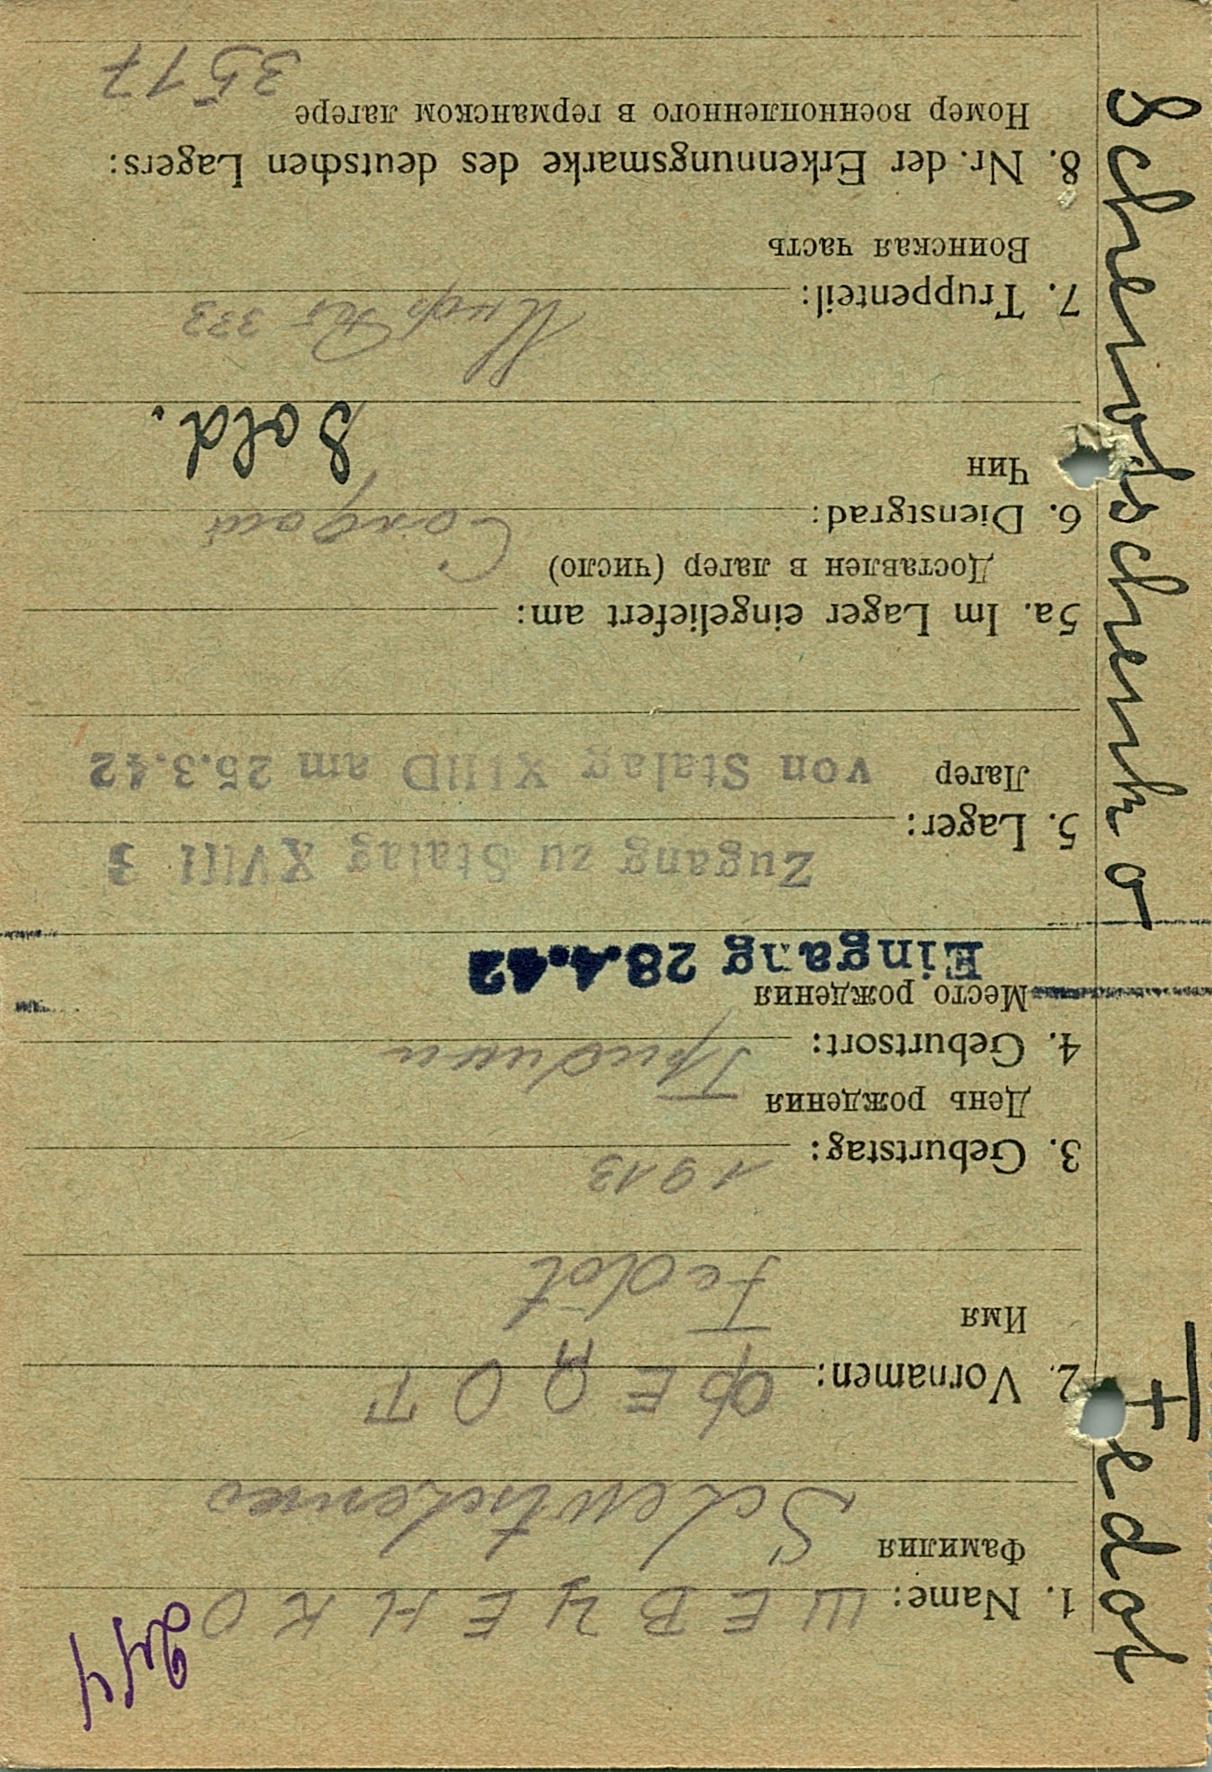 1. Name: ШЕВЧЕНКО
Фамилия
Schewtschenko
2. Vornamen: ФЕДОТ
Имя
Fedot
3. Geburtstag: 1913
День рождения
4. Geburtsort:
Место рождения
Eingang 28.4.42
Zugang zu Stalag XVIII B
5. Lager:
Лагер von Stalag XIIID am 25.3.42
5a. Im Lager eingeliefert am:
Доставлен в лагер (число)
6. Dienstgrad: Солдат
Чин
Sold.
7. Truppenteil: 333
Воинская часть
8. Nr. der Erkennungsmarke des deutschen Lagers:
Номер военнопленного в германском лагере
3517
Fedot